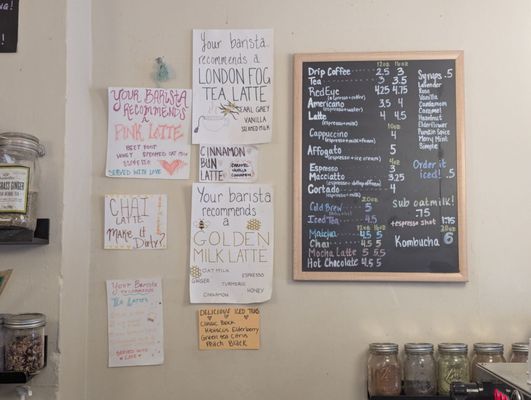 Your Barista
Recommends A
PINK LATTE
BEET ROOT
HONEY STEAMED OAT MILK
ESPRESSO
SERVED WITH LOVE
CHAI
LATTE
Make it Dirty?
Your Barista
Recommends
SERVED WITH
LOVE
Your barista
recommends a
LONDON FOG
TEA LATTE
EARL GREY
VANILLA
STEAMED MILK
CINNAMON
BUN
LATTE
CARAMEL
VANILLA
CINNAMON
Your barista
recommends a
GOLDEN
MILK LATTE
OAT MILK
ESPRESSO
GINGER
TURMERIC
HONEY
CINNAMON
DELICIOUS ICED TEAS
Classic Black
Hibiscus Elderberry
Green tea Citrus
Peach Black
12oz 16oz
Drip Coffee 2.5 3
Tea 3 3.5
RedEye 4.25 4.75
Americano 3.5 4
(espresso+water)
Latte 4 4.5
(espresso+milk)
Cappuccino 4
(espresso+milk+foam)
Affogato 5
(espresso+ice cream)
Espresso 3
Macciatto 3.25
Cortado 4
Cold Brew 5
Iced Tea 4.5
12oz 16oz
Matcha 4.5 5
Chai 4.5 5
Mocha Latte 5 5.5
Hot Chocolate 4.5
Syrups .5
Lavender
Rose
Vanilla
Cinnamon
Caramel
Hazelnut
Elderflower
Pumpkin Spice
Merry Mint
Simple
Order it
iced! .5
Sub oatmilk!
.75
+espresso shot 1.75
Kombucha 6
GINGER